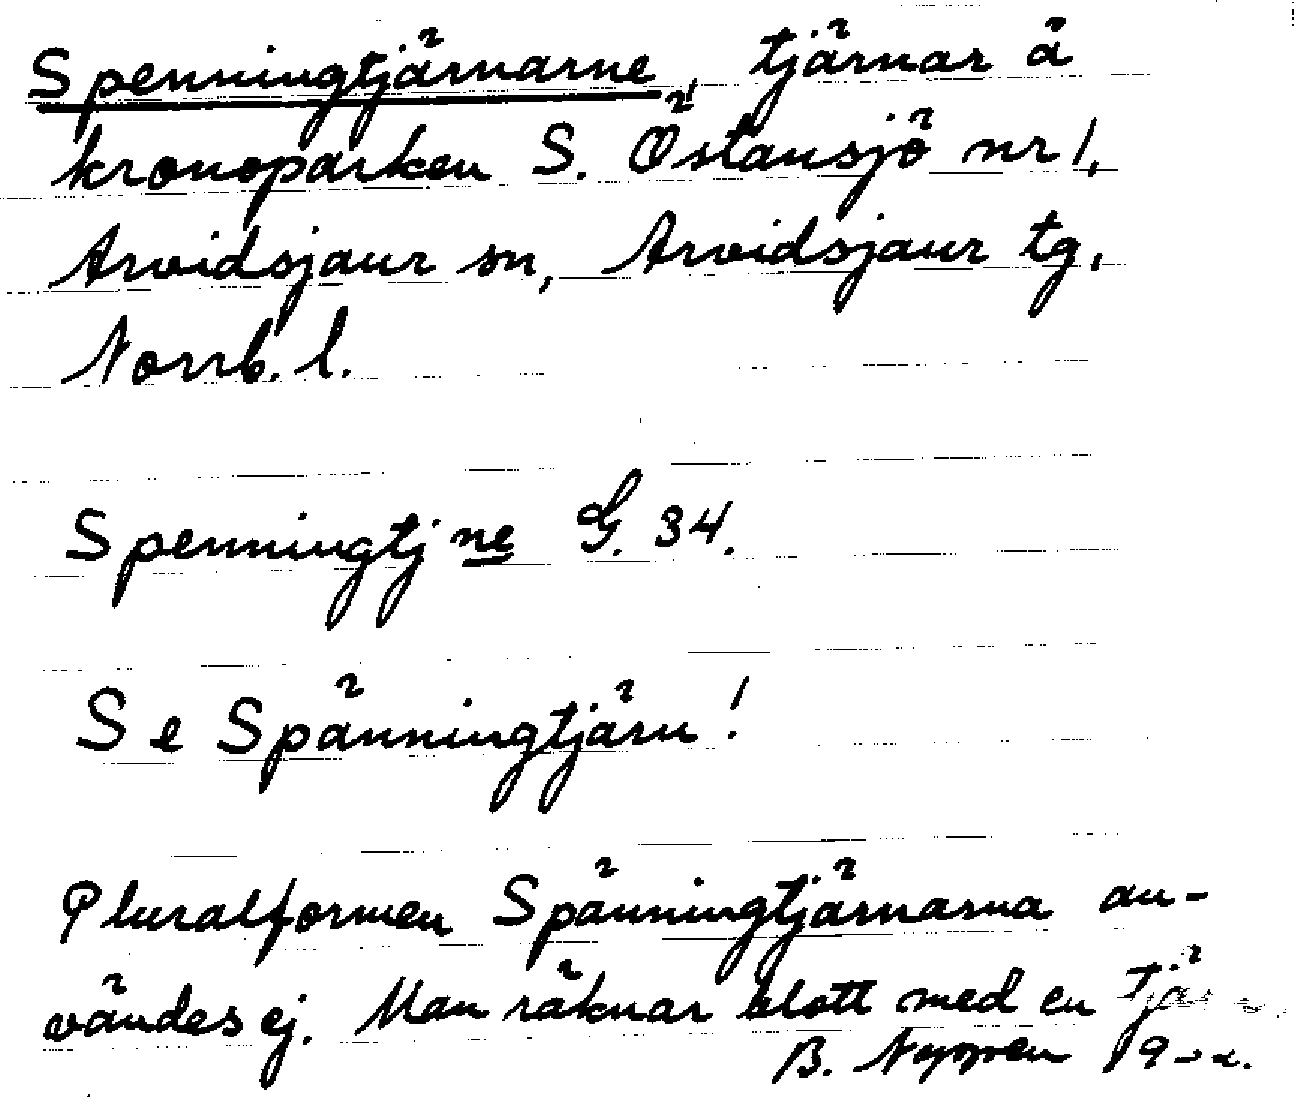 Spenningtjärnarne, tjärnar å
kronoparken S. Östansjö nr 1,
Arvidsjaur sn, Arvidsjaur tg,
Norrb. l.
Spenningtjne G. 34.
Se Spänningtjärn!
Pluralformen Spänningtjärnarna an-
vändes ej. Man räknar blott med en
B.